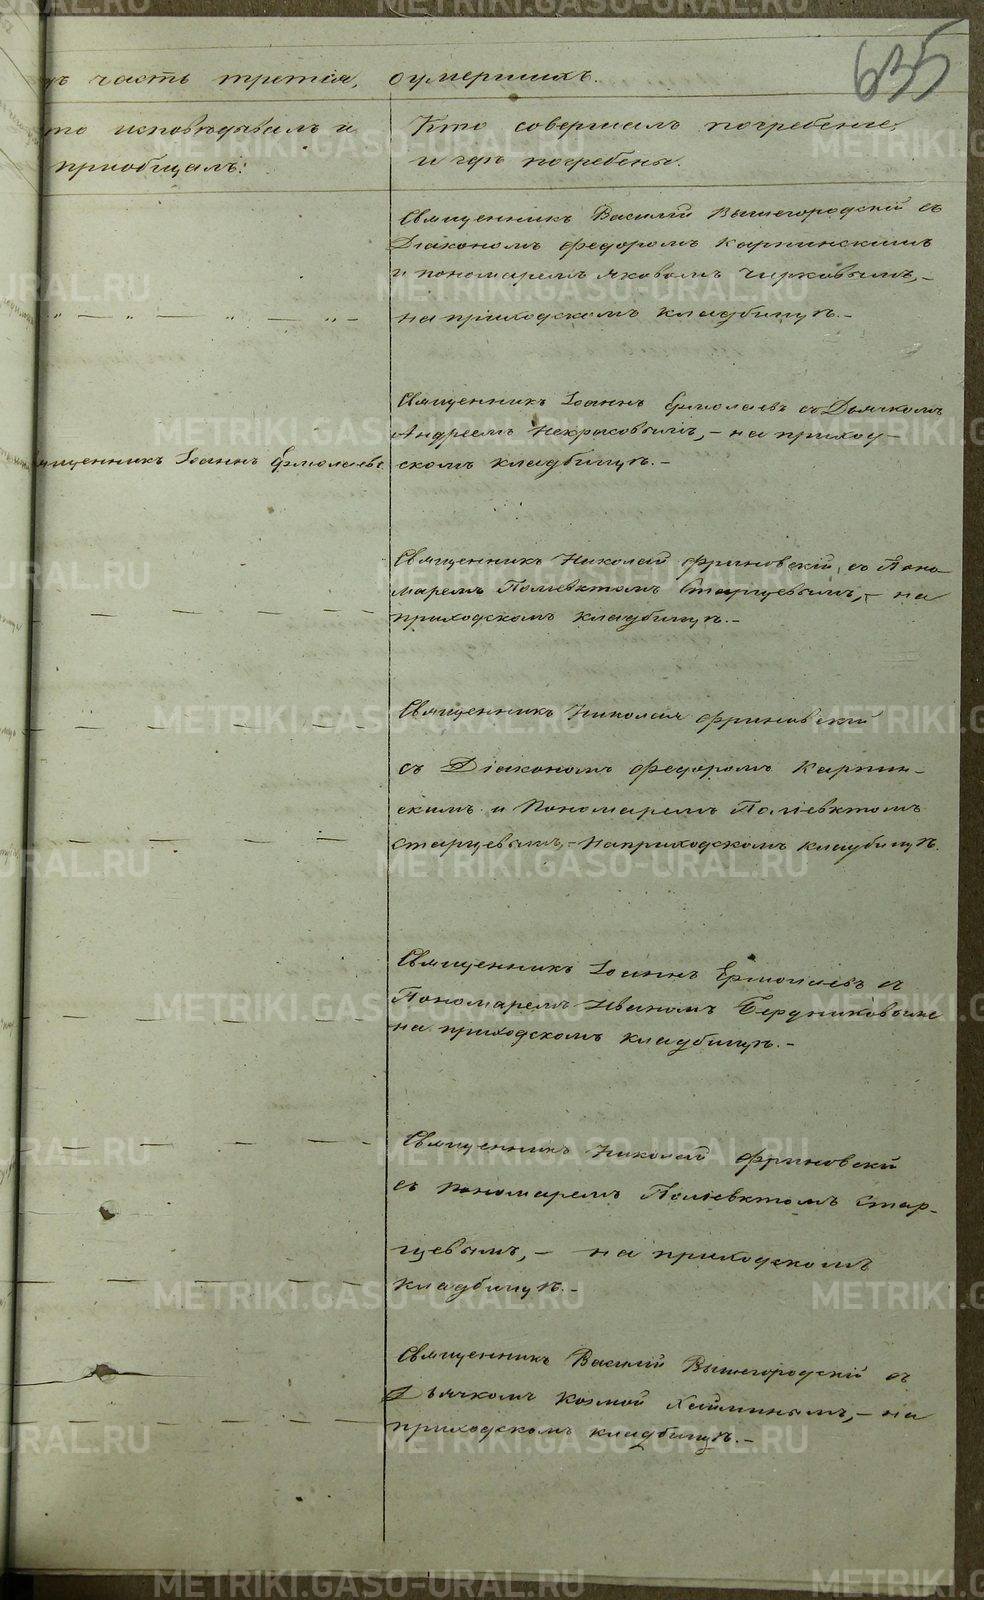 635
часть третія, оумершихъ.
исповѣдывалъ и
приобщалъ:
Кто совершалъ погребеніе,
и гдѣ погребены.
Священникъ Василій Вышегородскій съ
Діакономъ Федоромъ Карпинскимъ
и пономаремъ Яковомъ Чирковымъ,-
на приходскомъ кладбищѣ.-
Священникъ Іоаннъ Ермолаевъ съ Дьячкомъ
Андреемъ Некрасовымъ,- на приход-
скомъ кладбищѣ.-
Іоаннъ Ермолаевъ
Священникъ Николай Фриновскій, съ Поно-
маремъ Поліевктомъ Старцевымъ,- на
приходскомъ кладбищѣ.-
Священникъ Николай Фриновскій
съ Діакономъ Федоромъ Карпин-
скимъ и Пономаремъ Поліевктомъ
Старцевымъ,- на приходскомъ кладбищѣ.
Священникъ Іоаннъ Ермолаевъ съ
Пономаремъ Иваномъ Бердниковымъ
на приходскомъ кладбищѣ.-
Священникъ Николай Фриновскій
съ пономаремъ Поліевктомъ Стар-
цевымъ,- на приходскомъ
кладбищѣ.-
Священникъ Василій Вышегородскій съ
Дьячкомъ Козмой,- на
приходскомъ кладбищѣ.-
METRIKI.GASO-URAL.RU